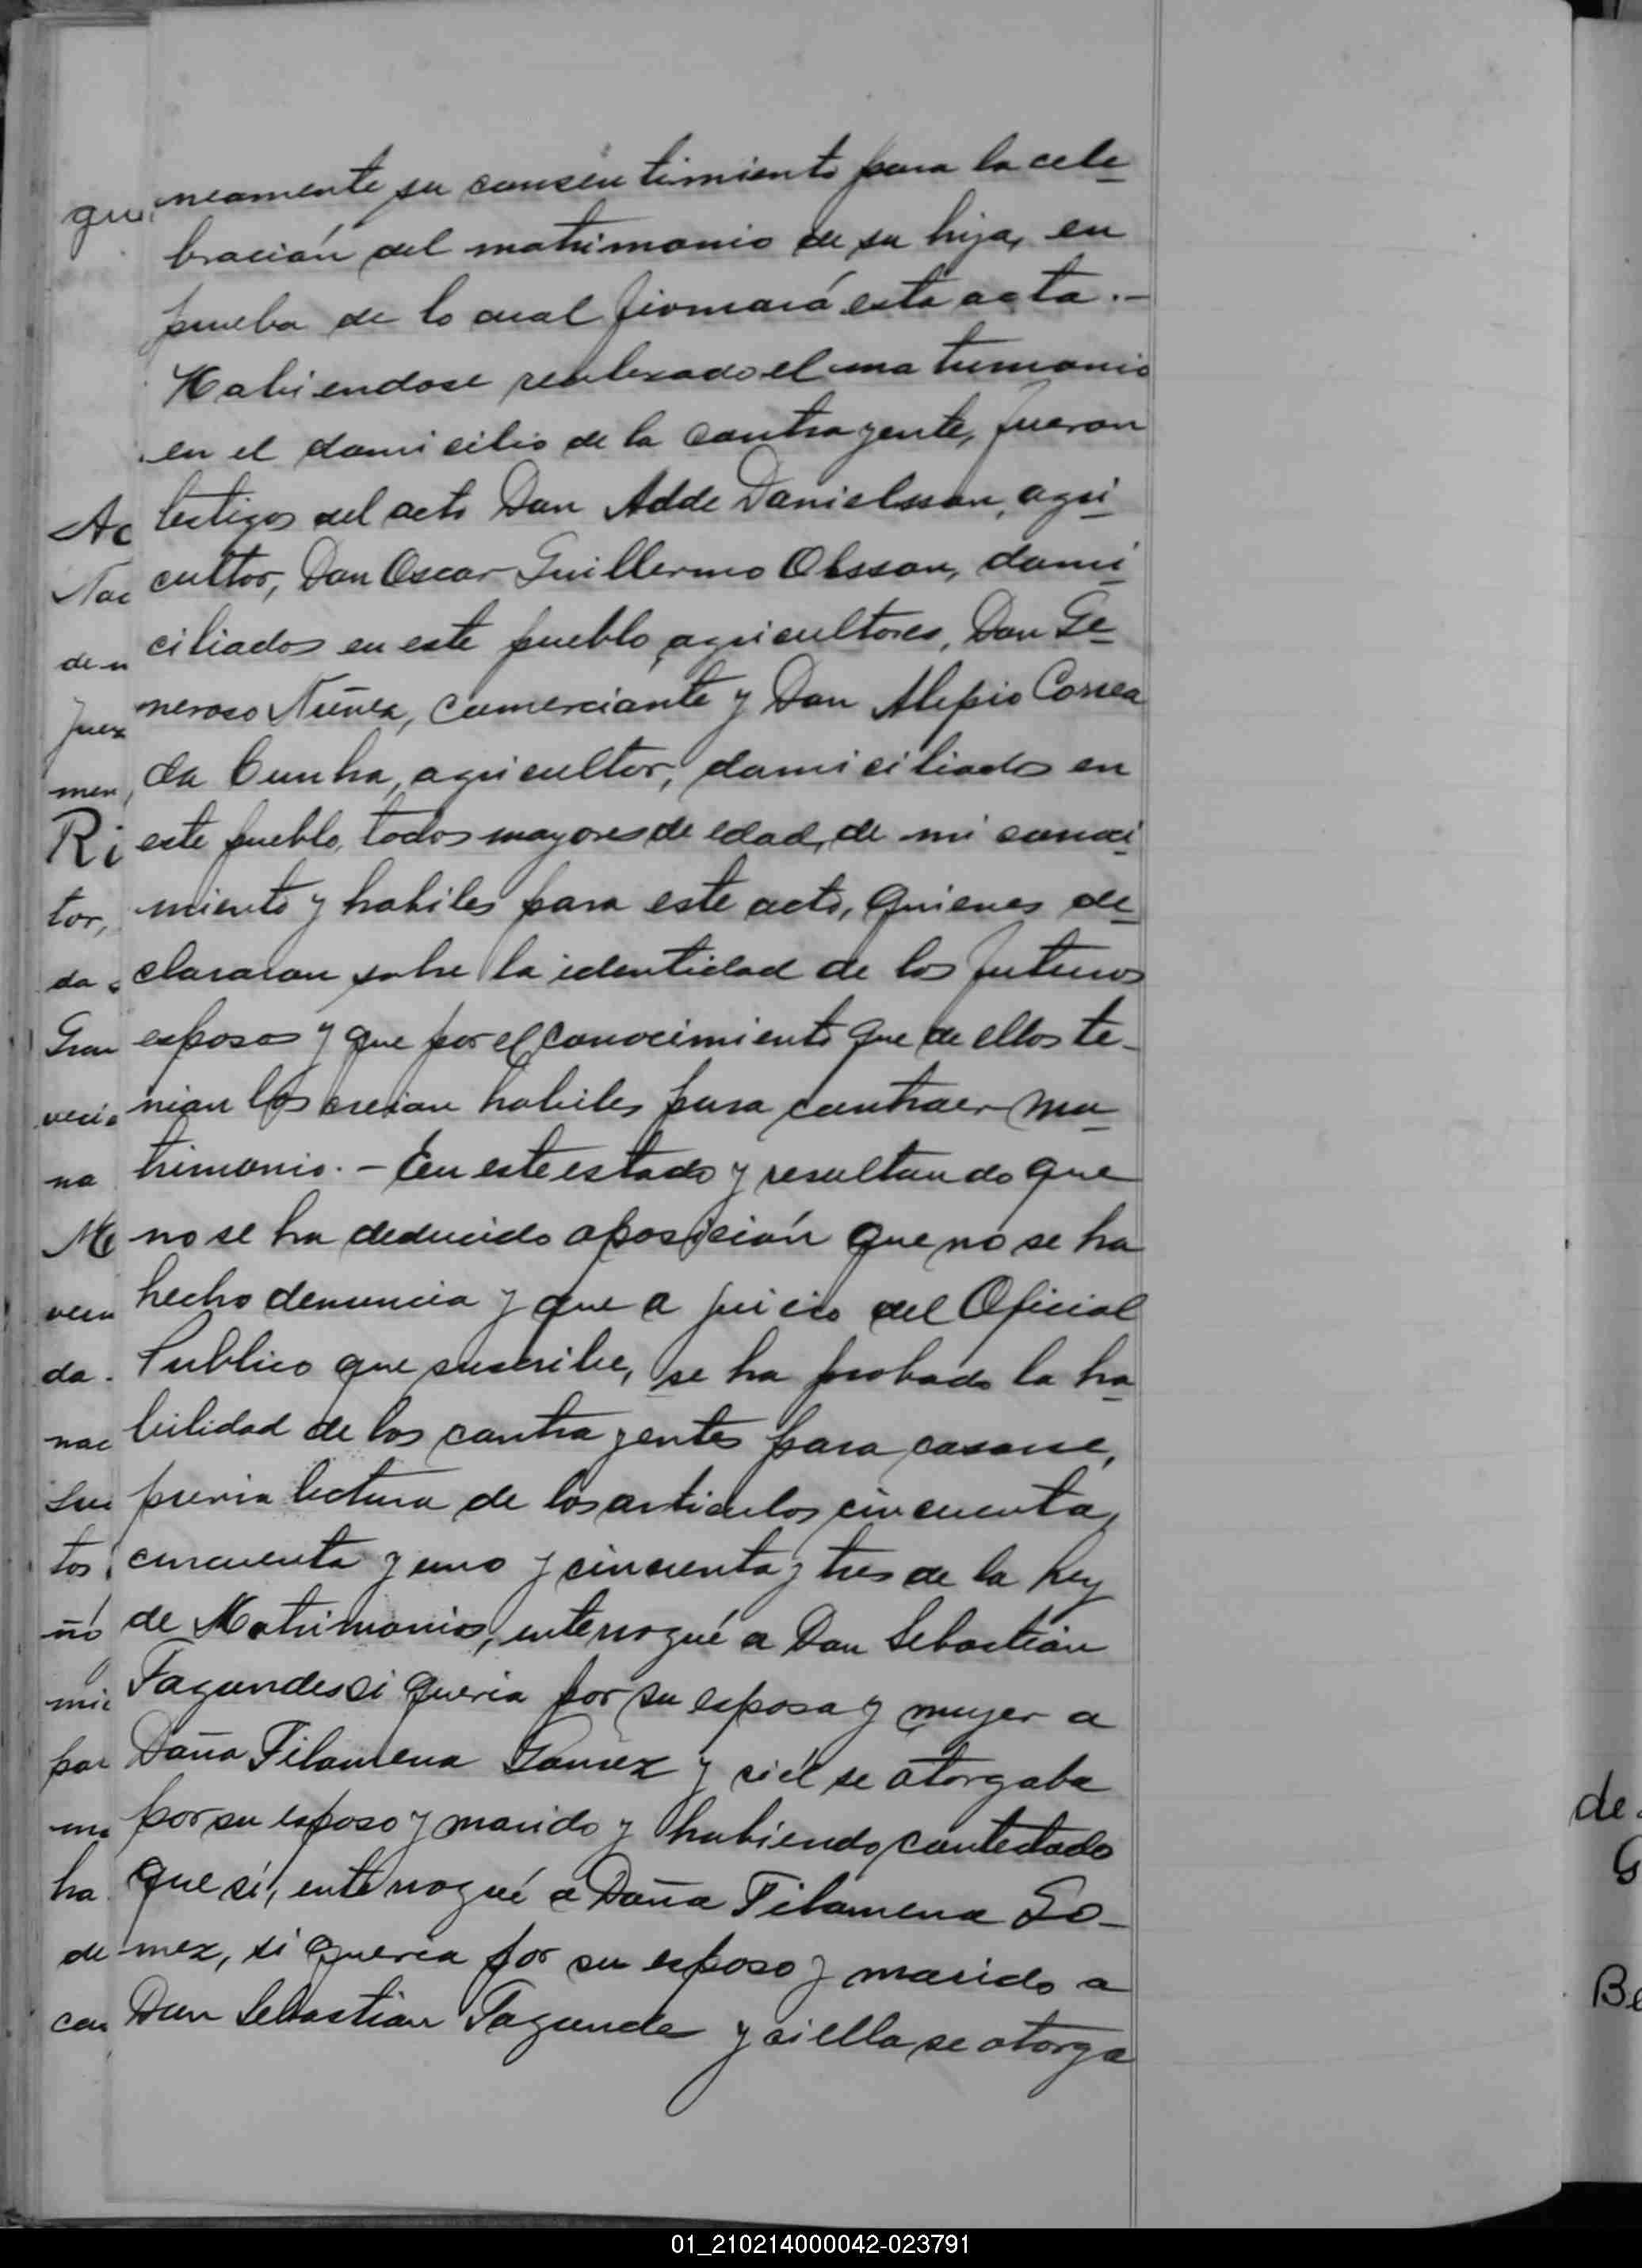 neamente su consentimiento para la cele-
bración del matrimonio de su hija, en
prueba de lo cual firmará esta acta.-
Habiendose realizado el matrimonio
en el domicilio de la contrayente, fueron
testigos del acto Don Adde Danielsson, agri-
cultor, Don Oscar Guillermo Olsson, domi-
ciliados en este pueblo, agricultores, Don Ge-
neroso Núñez, comerciante y Don Alepio Correa
da Cunha, agricultor, domiciliados en
este pueblo, todos mayores de edad, de mi conoci-
miento y habiles para este acto, quienes de-
clararon sobre la identidad de los futuros
esposos y que por el conocimiento que de ellos te-
nian los creian habiles para contraer ma-
trimonio.- En este estado y resultando que
no se ha deducido oposición que no se ha
hecho denuncia y que a juicio del Oficial
Publico que suscribe, se ha probado la ha-
bilidad de los contrayentes para casarse,
previa lectura de los articulos cincuenta,
cincuenta y uno y cincuenta y tres de la Ley
de Matrimonios, interrogué a Don Sebastián
Fagundes si queria por su esposa y mujer a
Doña Filomena Gomez y si él se otorgaba
por su esposo y marido y habiendo contestado
que sí, interrogué a Doña Filomena Go-
mez, si queria por su esposo y marido a
Don Sebastian Fagunde y si ella se otorga
gu
Ac
Nac
de n
Juez
men
Ri
tor,
da
Gru
veci
na
Me
vein
da.
nac
Sui
tos
ñó
mic
por
ma
ha
de
con
de
G
Be
01_210214000042-023791